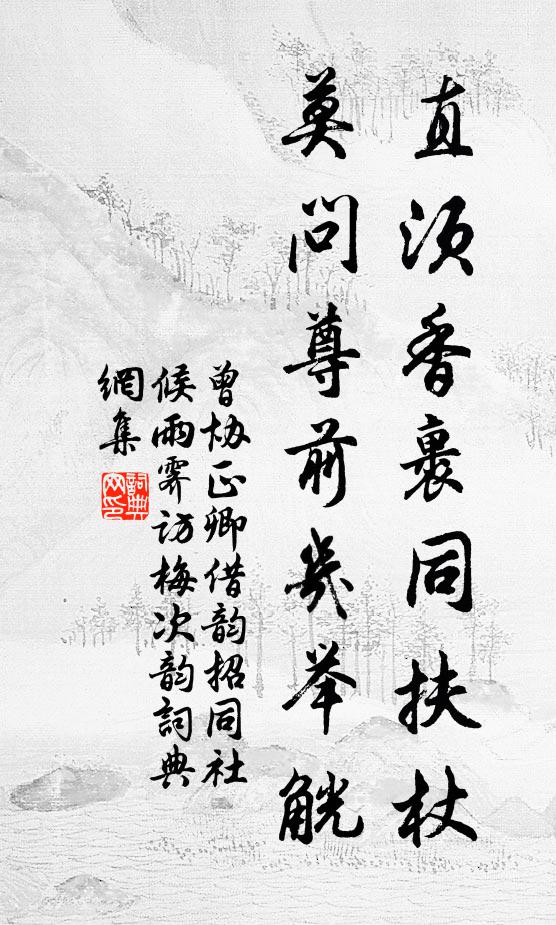 直須香裹同扶杖
莫問尊前幾举觥
曾协正卿借韵招同社
候雨霁访梅次韵詞典
網集
詞典
网印